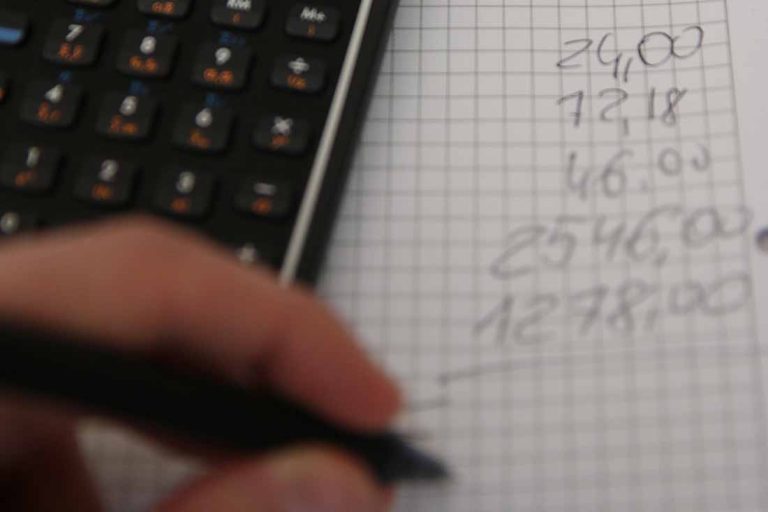 RM M+
7 8 9 ÷
4 5 6 ×
1 2 3 −
24,00
72,18
46,00
2546,00
1278,00